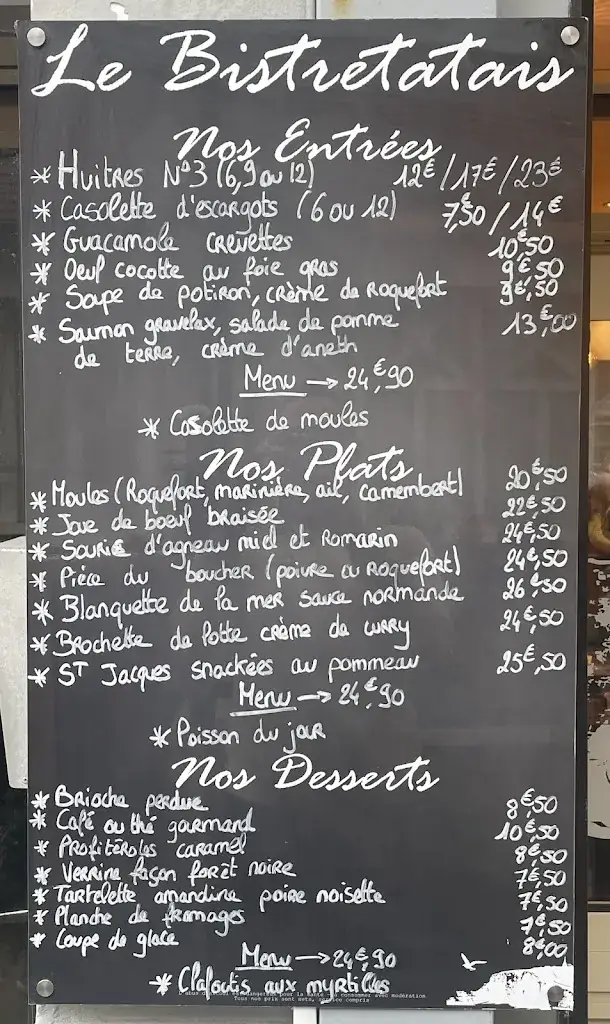 Le Bistretatais
Nos Entrées
* Huitres N°3 (6,9 ou 12) 12€/17€/23€
* Casolette d'escargots (6 ou 12) 7€,50/14€
* Guacamole crevettes 10€,50
* Oeuf cocotte au foie gras 9€,50
* Soupe de potiron, crème de Roquefort 9€,50
* Saumon gravelax, salade de pomme 13€,00
de terre, crème d'aneth
Menu → 24€,90
* Casolette de moules
Nos Plats
* Moules (Roquefort, marinière, ail, camembert) 20€,50
* Joue de boeuf braisée 22€,50
* Souris d'agneau miel et Romarin 24€,50
* Pièce du boucher (poivre ou Roquefort) 24€,50
* Blanquette de la mer sauce normande 26€,50
* Brochette de lotte crème de curry 24€,50
* ST Jacques snackées au pommeau 25€,50
Menu → 24€,90
* Poisson du jour
Nos Desserts
* Brioche perdue 8€,50
* Café ou thé gourmand 10€,50
* Profitéroles caramel 8€,50
* Verrine façon forêt noire 7€,50
* Tartelette amandine poire noisette 7€,50
* Planche de fromages 7€,50
* Coupe de glace 8€,00
Menu → 24€,90
* Clafoutis aux myrtilles
L'abus d'alcool est dangereux pour la santé à consommer avec modération
Tous nos prix sont nets, service compris